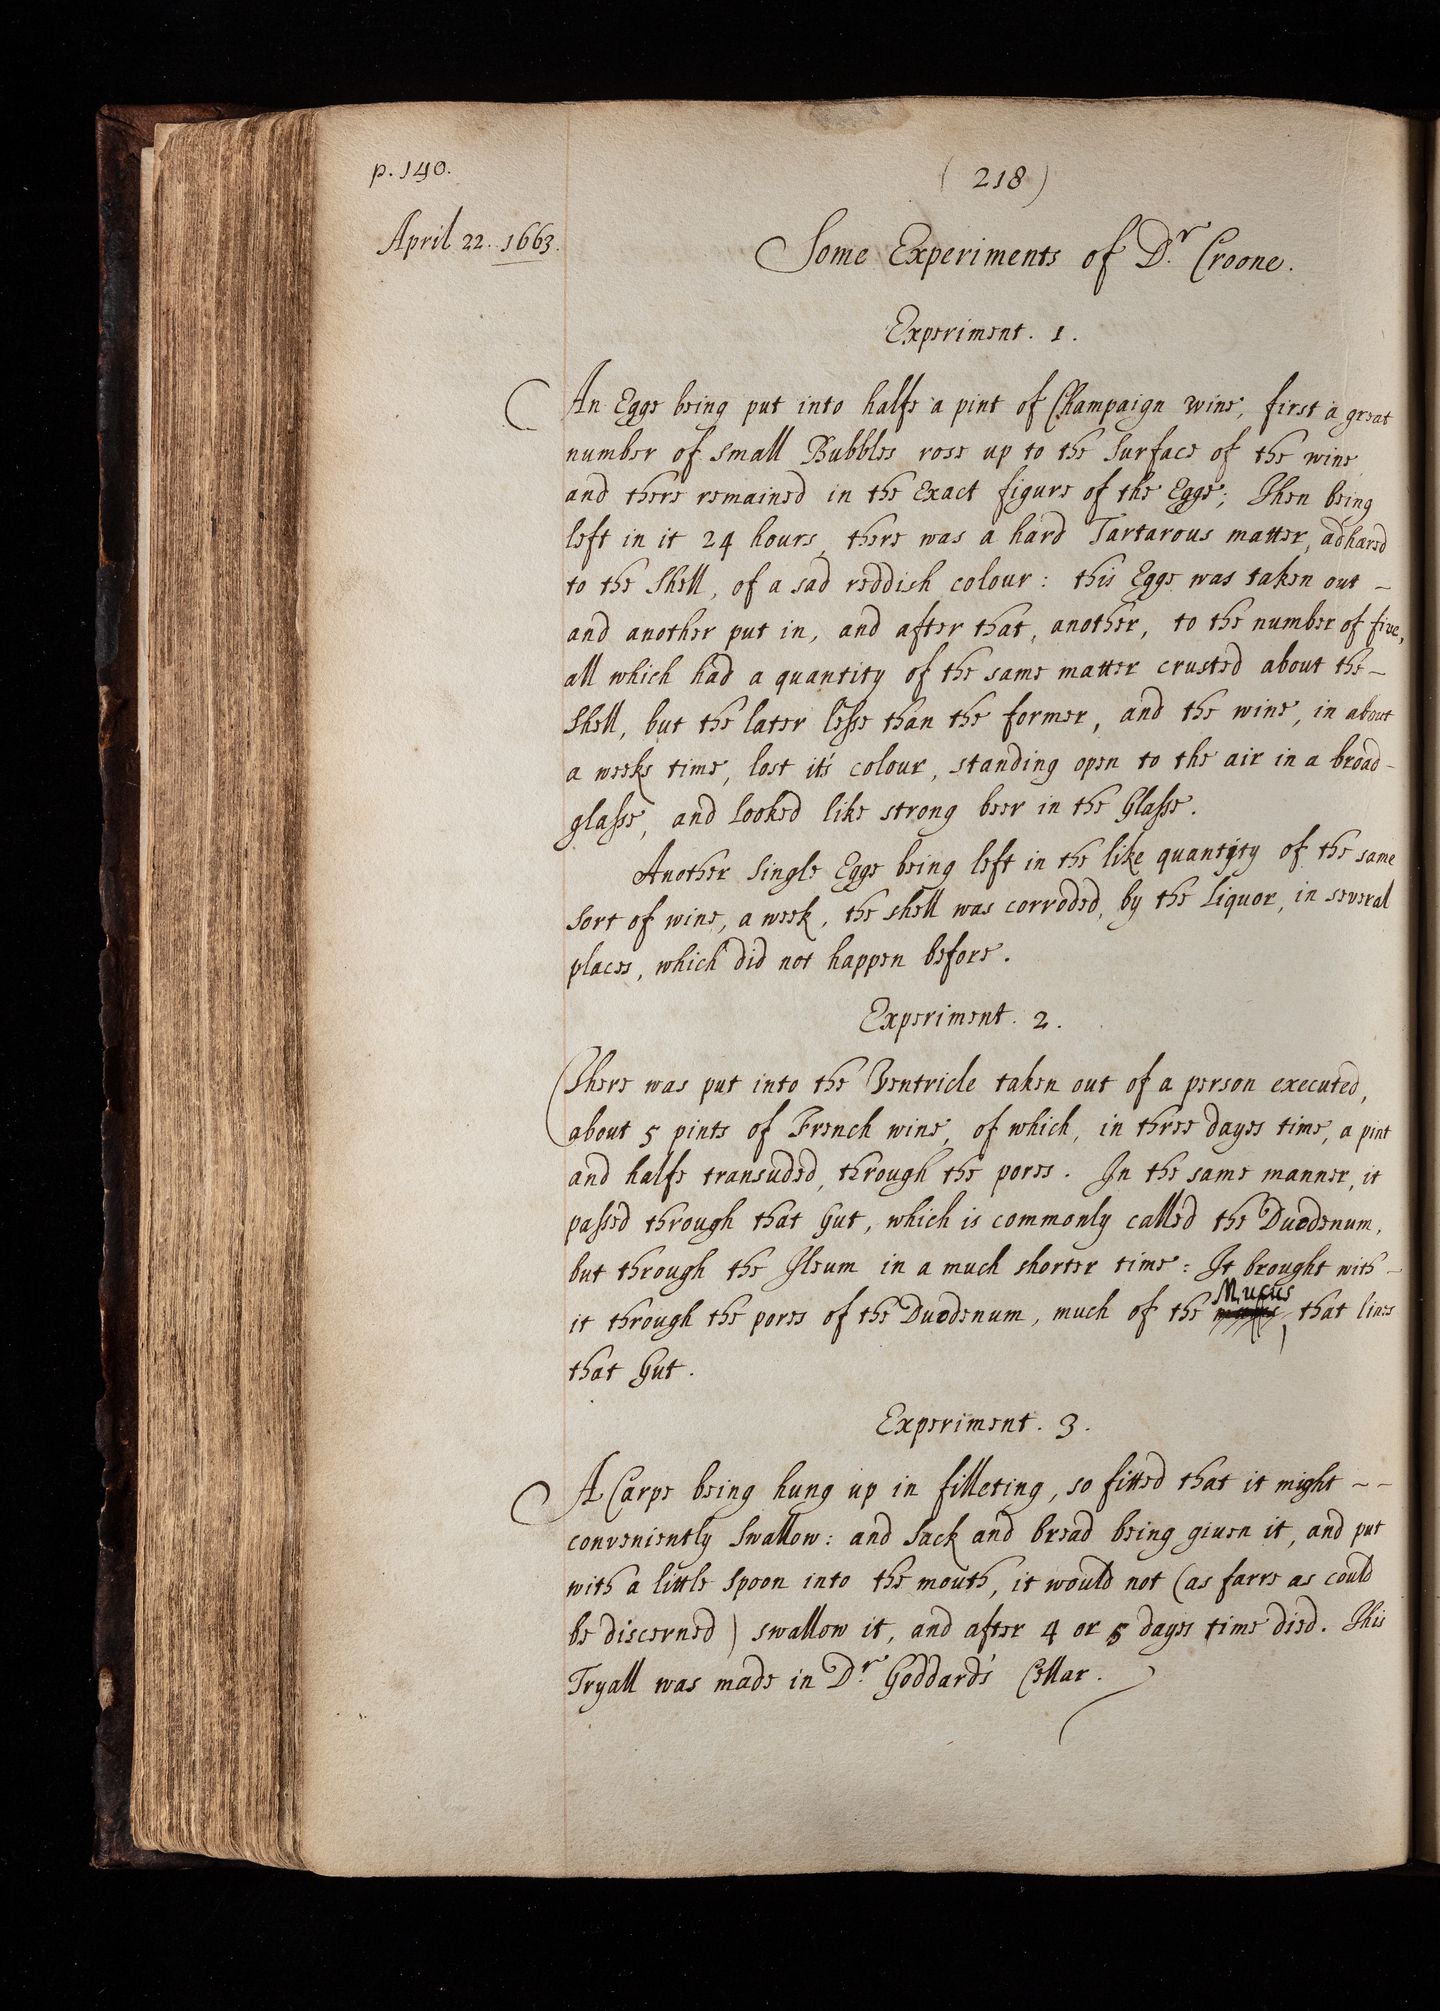 p. 140.
(218)
April 22. 1663.
Some Experiments of Dr. Croone.
Experiment. 1.
An Egge being put into halfe a pint of Champaign wine, first a great
number of small Bubbles rose up to the surface of the wine
and there remained in the exact figure of the Egge; Then being
left in it 24 hours, there was a hard Tartarous matter, adhared
to the shell, of a sad reddish colour: this Egge was taken out –
and another put in, and after that, another, to the number of five,
all which had a quantity of the same matter crusted about the –
shell, but the later lesse than the former, and the wine, in about
a weeks time, lost it's colour, standing open to the air in a broad –
glasse, and looked like strong beer in the Glasse.
Another single Egge being left in the like quantity of the same
sort of wine, a week, the shell was corroded, by the Liquor, in several
places, which did not happen before.
Experiment. 2.
There was put into the Ventricle taken out of a person executed,
about 5 pints of French wine, of which, in three dayes time, a pint
and halfe transuded, through the pores. In the same manner, it
passed through that Gut, which is commonly called the Duodenum,
but through the Ileum in a much shorter time: It brought with –
it through the pores of the Duodenum, much of the Mucus, that lines
that Gut.
Experiment. 3.
A Carpe being hung up in filleting, so fitted that it might – –
conveniently swallow: and sack and bread being given it, and put
with a little spoon into the mouth, it would not (as farre as could
be discerned) swallow it, and after 4 or 5 dayes time died. This
Tryall was made in Dr. Goddard's Cellar.